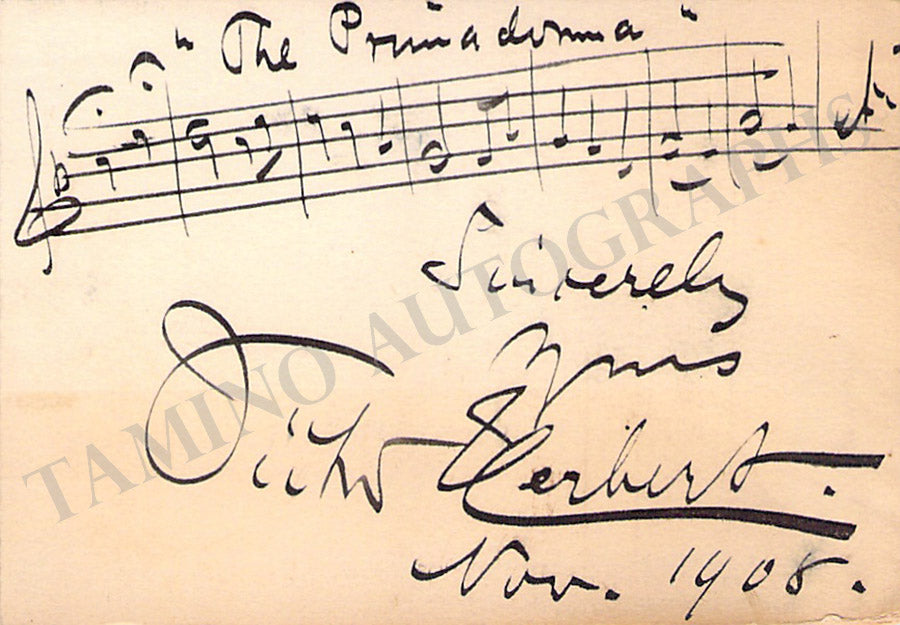 "The Primadonna"
etc.
Sincerely
Yours
Victor Herbert.
Nov. 1908.
TAMINO AUTOGRAPHS